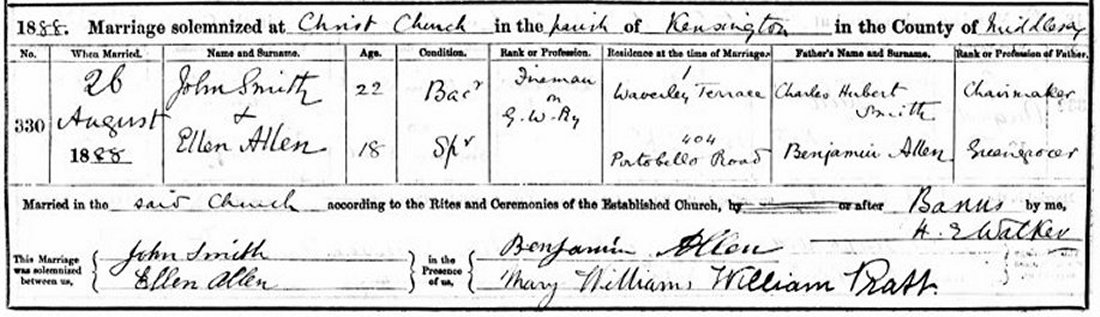 1888. Marriage solemnized at Christ Church in the parish of Kensington in the County of Middlesex
No. When Married. Name and Surname. Age. Condition. Rank or Profession. Residence at the time of Marriage. Father's Name and Surname. Rank or Profession of Father.
330 26 August 1888 John Smith 22 Bacr Fireman on G.W.Ry 1 Waverley Terrace Charles Herbert Smith Chairmaker
& Ellen Allen 18 Spr 404 Portobello Road Benjamin Allen Greengrocer
Married in the said Church according to the Rites and Ceremonies of the Established Church, by or after Banns by me,
H. E Walker
This Marriage was solemnized between us, John Smith in the Presence of us, Benjamin Allen
Ellen Allen Mary Williams William Pratt.